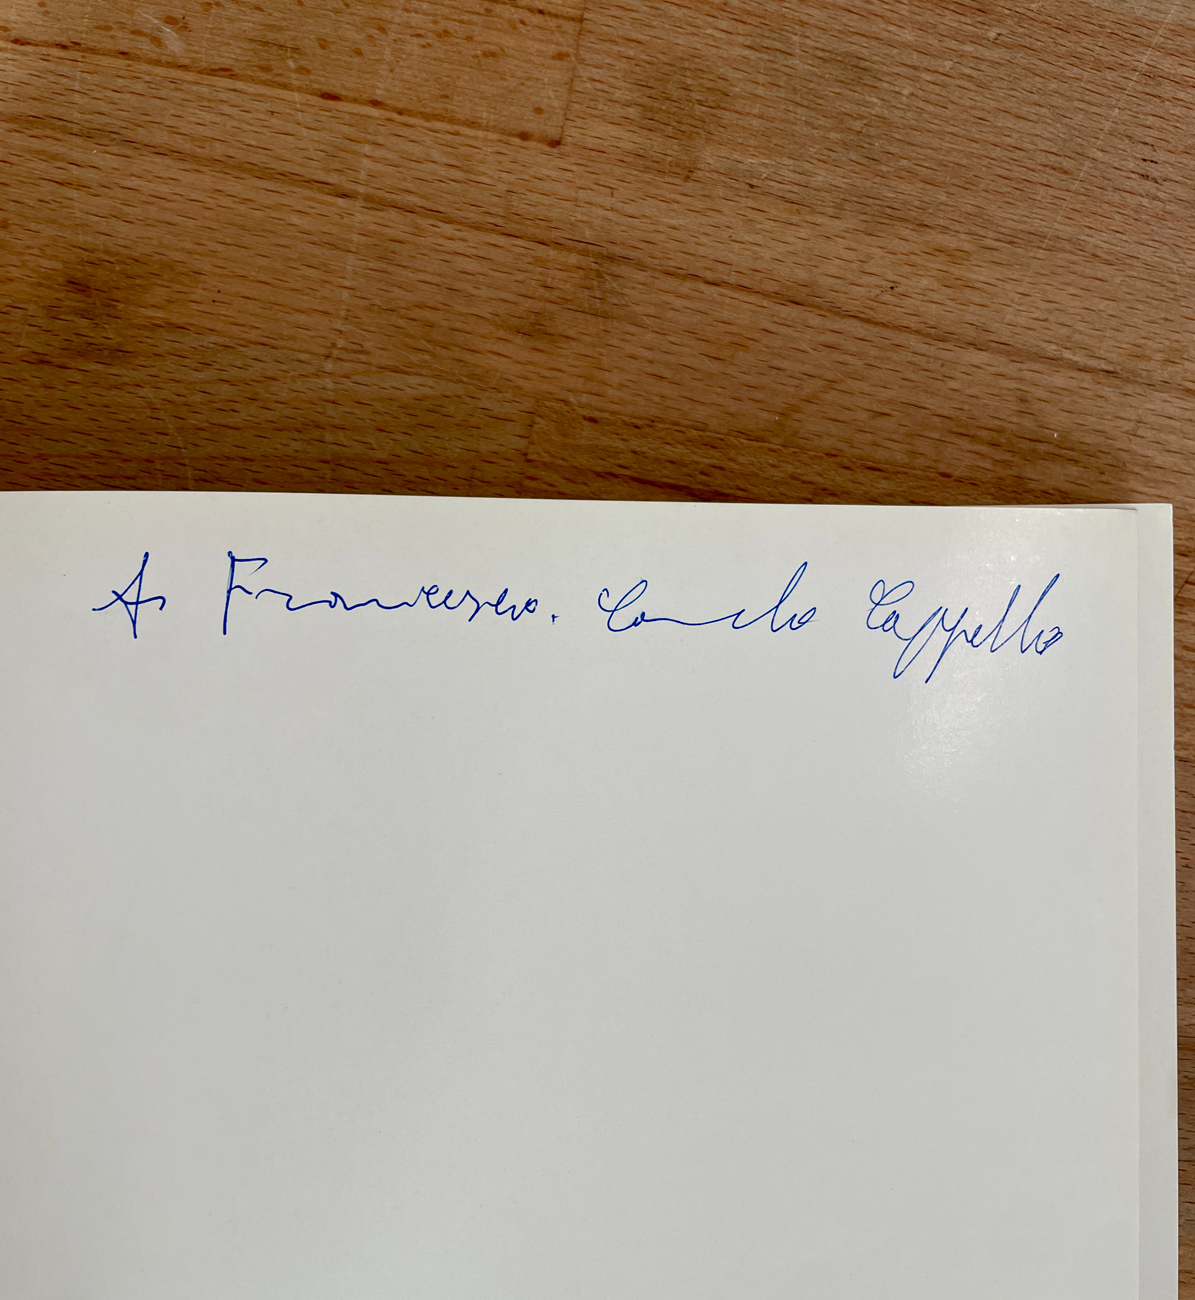 A Francesco. Carmelo Cappello